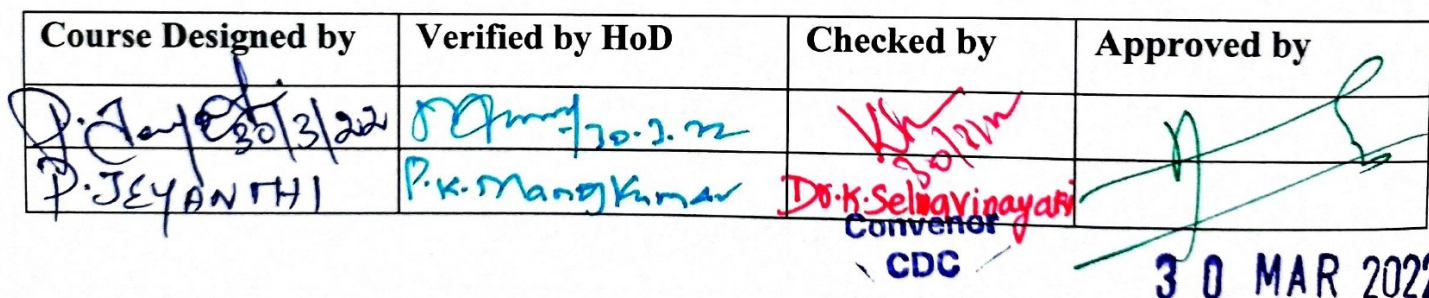 Course Designed by Verified by HoD Checked by Approved by
30/3/22 30.3.22 30/3/22
P. JEYANTHI P.K. Manoj Kumar Dr.K.Selvavinayaki
Convenor
CDC
30 MAR 2022